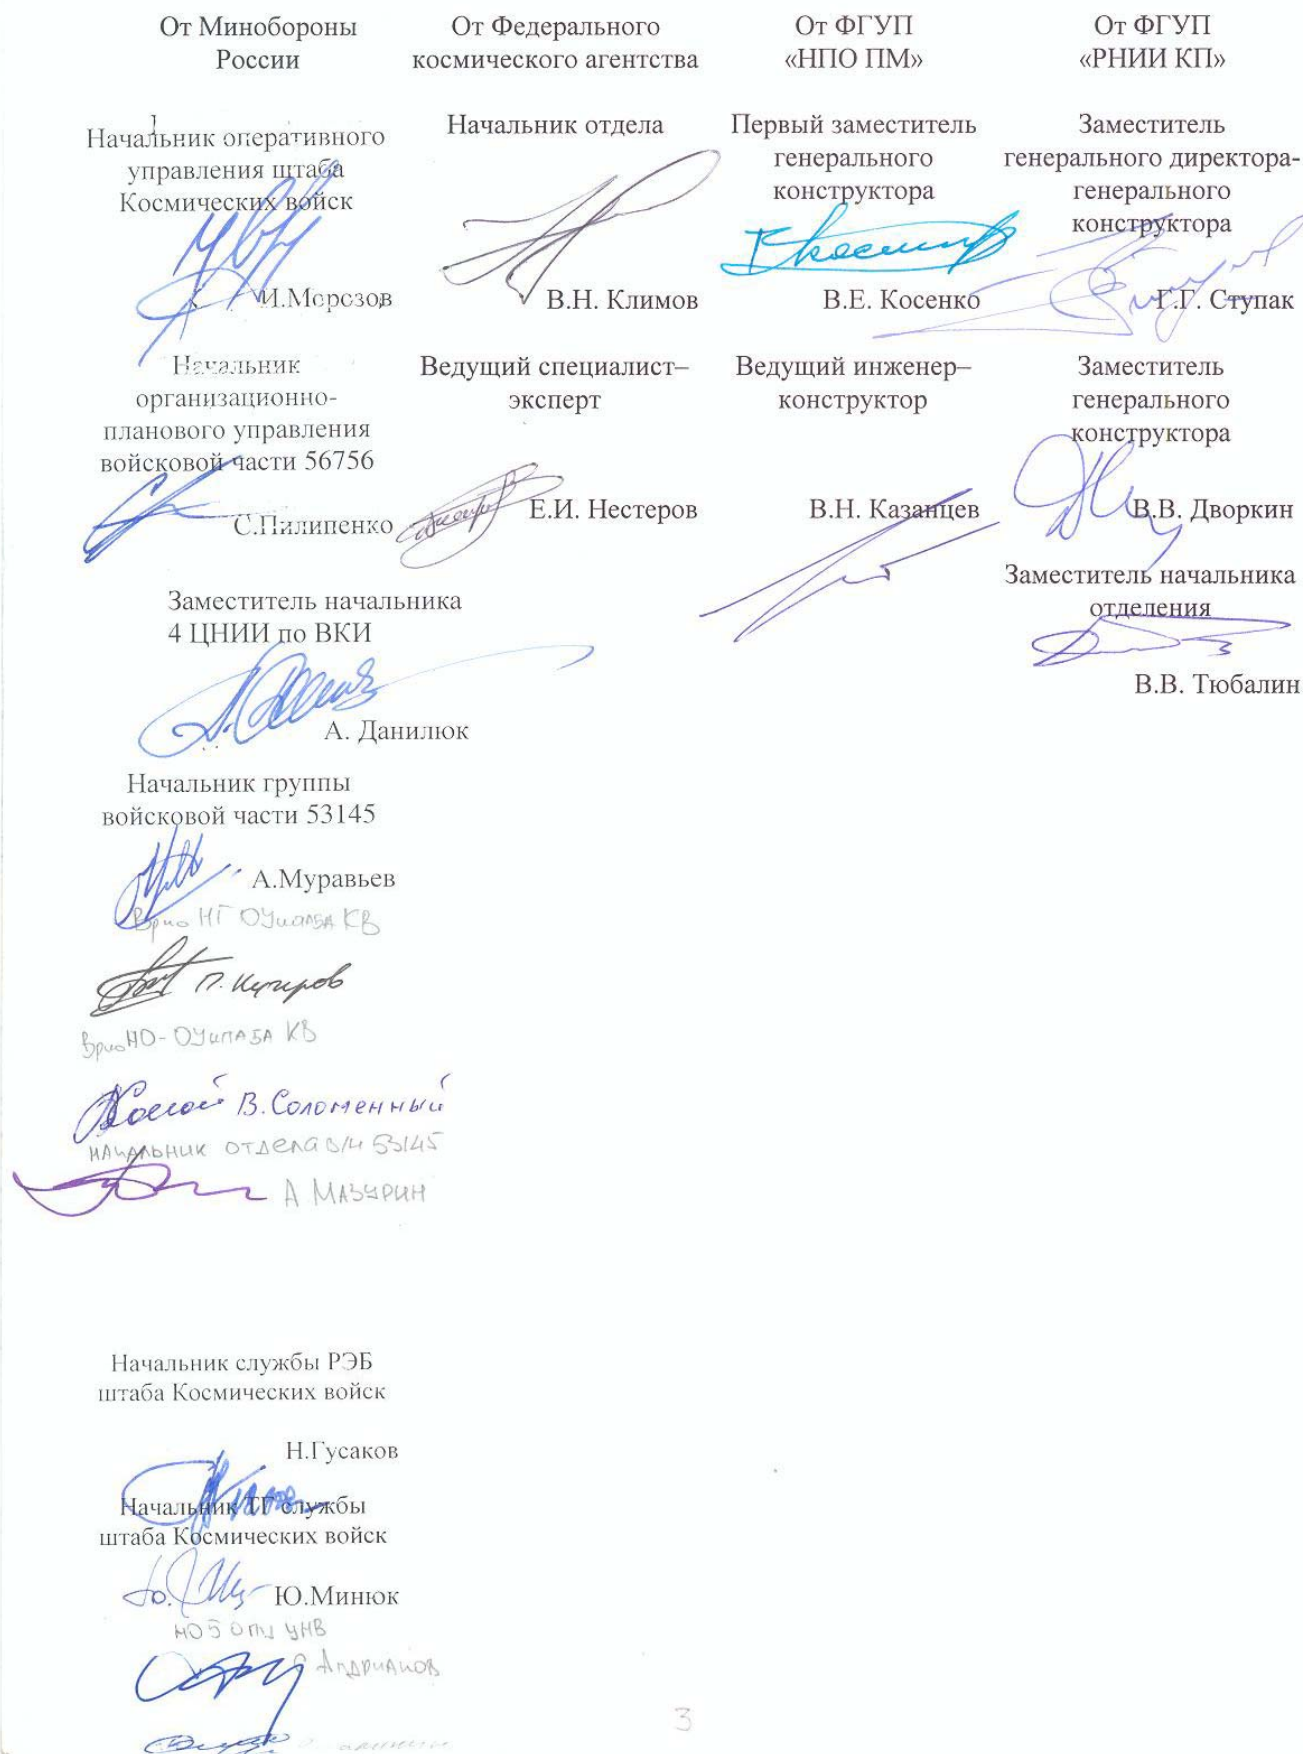 От Минобороны
России
Начальник оперативного
управления штаба
Космических войск
И.Морозов
Начальник
организационно-
планового управления
войсковой части 56756
С.Пилипенко
Заместитель начальника
4 ЦНИИ по ВКИ
А. Данилюк
Начальник группы
войсковой части 53145
А.Муравьев
Врио НГ КВ
П. Кучеров
Врио НО- КВ
В. Соломенный
начальник отдела в/ч 53145
А Мазурин
Начальник службы РЭБ
штаба Космических войск
Н.Гусаков
Начальник ТГ службы
штаба Космических войск
Ю.Минюк
НО 5 ОПУ УНВ
Андрианов
От Федерального
космического агентства
Начальник отдела
В.Н. Климов
Ведущий специалист–
эксперт
Е.И. Нестеров
От ФГУП
«НПО ПМ»
Первый заместитель
генерального
конструктора
В.Е. Косенко
Ведущий инженер–
конструктор
В.Н. Казанцев
От ФГУП
«РНИИ КП»
Заместитель
генерального директора-
генерального
конструктора
Г.Г. Ступак
Заместитель
генерального
конструктора
В.В. Дворкин
Заместитель начальника
отделения
В.В. Тюбалин
3